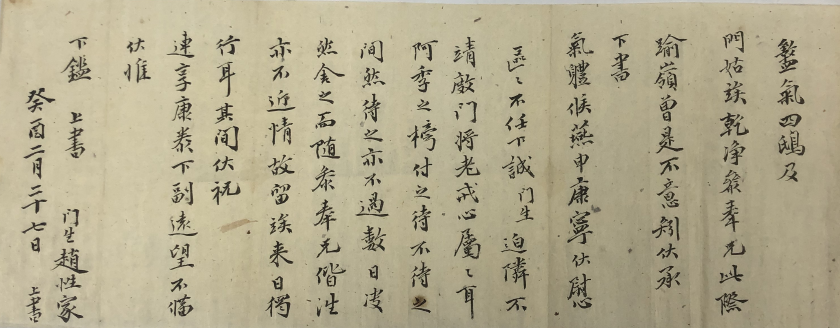 盭氣四鴟及
門姑俟乾淨發奉兄此際
踰嶺曾是不意剡伏承
下書
氣體候燕申康寧伏慰
區〻不任下誠門生迫隣不
靖廠門將老戒心屬〻耳
阿季之榜付之待不待之
間然待之亦不過數日浚
然舍之而随黍奉兄偕泩
亦不近情故留俟来日獨
行耳其間伏祝
連享康泰下副遠望不備
伏惟
下鑑 上書
癸酉二月二十七日 門生趙性家 上書